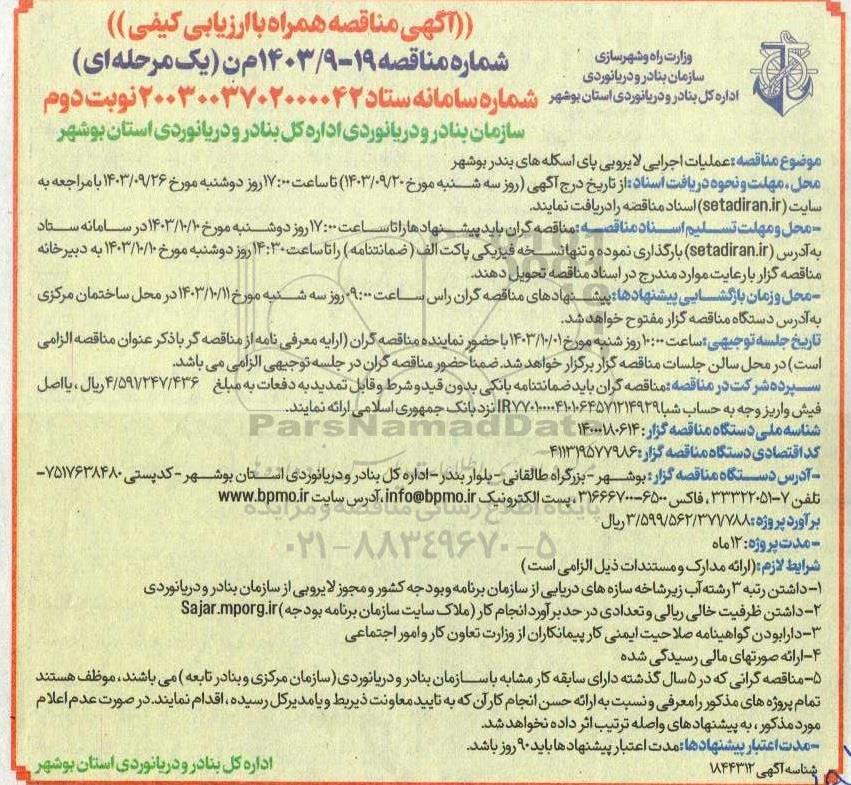 ((آگهی مناقصه همراه با ارزیابی کیفی))
شماره مناقصه ۱۹-۱۴۰۳/۹م ن (یک مرحله ای)
وزارت راه و شهرسازی
سازمان بنادر و دریانوردی
اداره کل بنادر و دریانوردی استان بوشهر
شماره سامانه ستاد ۲۰۰۳۰۰۳۷۰۲۰۰۰۰۴۲ نوبت دوم
سازمان بنادر و دریانوردی اداره کل بنادر و دریانوردی استان بوشهر
موضوع مناقصه: عملیات اجرایی لایروبی پای اسکله های بندر بوشهر
محل، مهلت و نحوه دریافت اسناد: از تاریخ درج آگهی (روز سه شنبه مورخ ۱۴۰۳/۰۹/۲۰) تا ساعت ۱۷:۰۰ روز دوشنبه مورخ ۱۴۰۳/۰۹/۲۶ با مراجعه به
سایت (setadiran.ir) اسناد مناقصه را دریافت نمایند.
-محل و مهلت تسلیم اسناد مناقصه: مناقصه گران باید پیشنهادها را تا ساعت ۱۷:۰۰ روز دوشنبه مورخ ۱۴۰۳/۱۰/۱۰ در سامانه ستاد
به آدرس (setadiran.ir) بارگذاری نموده و تنها نسخه فیزیکی پاکت الف (ضمانتنامه) را تا ساعت ۱۴:۳۰ روز دوشنبه مورخ ۱۴۰۳/۱۰/۱۰ به دبیرخانه
مناقصه گزار با رعایت موارد مندرج در اسناد مناقصه تحویل دهند.
-محل وزمان بازگشایی پیشنهادها: پیشنهادهای مناقصه گران راس ساعت ۰۹:۰۰ روز سه شنبه مورخ ۱۴۰۳/۱۰/۱۱ در محل ساختمان مرکزی
به آدرس دستگاه مناقصه گزار مفتوح خواهد شد.
تاریخ جلسه توجیهی: ساعت ۱۰:۰۰ روز شنبه مورخ ۱۴۰۳/۱۰/۰۱ با حضور نماینده مناقصه گران (ارایه معرفی نامه از مناقصه گر با ذکر عنوان مناقصه الزامی
است) در محل سالن جلسات مناقصه گزار برگزار خواهد شد. ضمنا حضور مناقصه گران در جلسه توجیهی الزامی می باشد.
سپرده شرکت در مناقصه: مناقصه گران باید ضمانتنامه بانکی بدون قید و شرط و قابل تمدید به دفعات به مبلغ ۴/۵۹۱/۲۴۷/۴۳۶ ریال، یا اصل
فیش واریز وجه به حساب شبا IR۷۷۰۱۰۰۰۰۴۱۰۱۰۶۴۵۷۱۲۱۴۹۲۹ نزد بانک جمهوری اسلامی ارائه نمایند.
شناسه ملی دستگاه مناقصه گزار: ۱۴۰۰۰۱۸۰۶۱۴
کد اقتصادی دستگاه مناقصه گزار: ۴۱۱۳۱۹۵۷۷۹۸۶
-آدرس دستگاه مناقصه گزار: بوشهر - بزرگراه طالقانی - بلوار بندر - اداره کل بنادر و دریانوردی استان بوشهر - کدپستی ۷۵۱۷۶۳۸۴۸۰-
تلفن ۷-۳۳۳۲۲۰۵۱، فاکس ۶۵۰۰-۳۱۶۶۶۷۰۰، پست الکترونیک info@bpmo.ir، آدرس سایت www.bpmo.ir
برآورد پروژه: ۳/۵۹۹/۵۶۲/۳۷۱/۷۸۸ ریال
-مدت پروژه: ۱۲ ماه
شرایط لازم: (ارائه مدارک و مستندات ذیل الزامی است)
۱-داشتن رتبه ۳ رشته آب زیرشاخه سازه های دریایی از سازمان برنامه و بودجه کشور و مجوز لایروبی از سازمان بنادر و دریانوردی
۲-داشتن ظرفیت خالی ریالی و تعدادی در حد برآورد انجام کار (ملاک سایت سازمان برنامه بودجه) Sajar.mporg.ir
۳-دارا بودن گواهینامه صلاحیت ایمنی کار پیمانکاران از وزارت تعاون کار و امور اجتماعی
۴-ارائه صورتهای مالی رسیدگی شده
۵-مناقصه گرانی که در ۵ سال گذشته دارای سابقه کار مشابه با سازمان بنادر و دریانوردی (سازمان مرکزی و بنادر تابعه) می باشند، موظف هستند
تمام پروژه های مذکور را معرفی و نسبت به ارائه حسن انجام کار آن که به تایید معاونت ذیربط و یا مدیر کل رسیده، اقدام نمایند. در صورت عدم اعلام
مورد مذکور، به پیشنهادهای واصله ترتیب اثر داده نخواهد شد.
-مدت اعتبار پیشنهادها: مدت اعتبار پیشنهادها باید ۹۰ روز باشد.
شناسه آگهی ۱۸۴۴۳۱۲
اداره کل بنادر و دریانوردی استان بوشهر
ParsNamadData
پایگاه اطلاع رسانی مناقصه و مزایده
۰۲۱-۸۸۳۴۹۶۷۰-۵